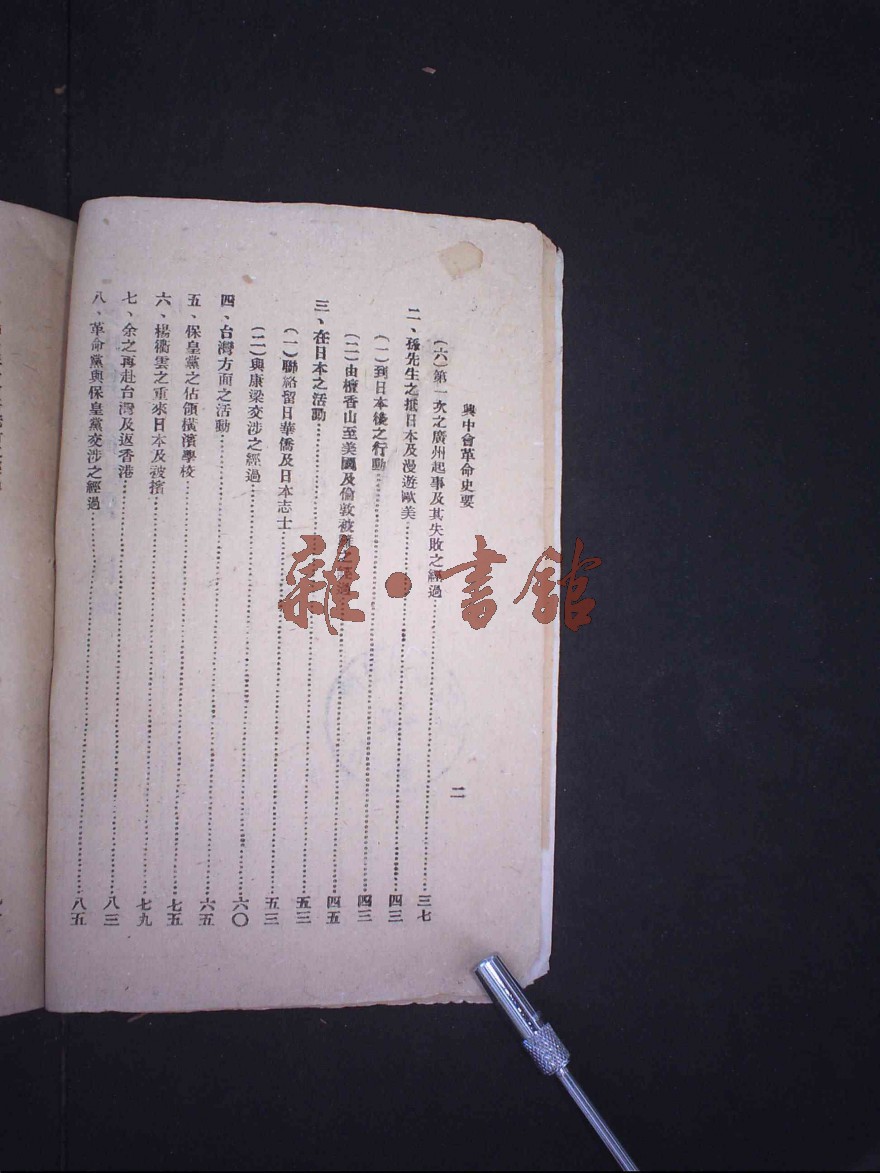 興中會革命史要
二
(六)第一次之廣州起事及其失敗之經過……三七
二、孫先生之抵日本及漫遊歐美……四三
(一)到日本後之行動……四三
(二)由檀香山至美國及倫敦被難之經過……四五
三、在日本之活動……五三
(一)聯絡留日華僑及日本志士……五三
(二)與康梁交涉之經過……六〇
四、台灣方面之活動……六五
五、保皇黨之佔領橫濱學校……七五
六、楊衢雲之重來日本及被擯……七九
七、余之再赴台灣及返香港……八三
八、革命黨與保皇黨交涉之經過……八五
雜·書館